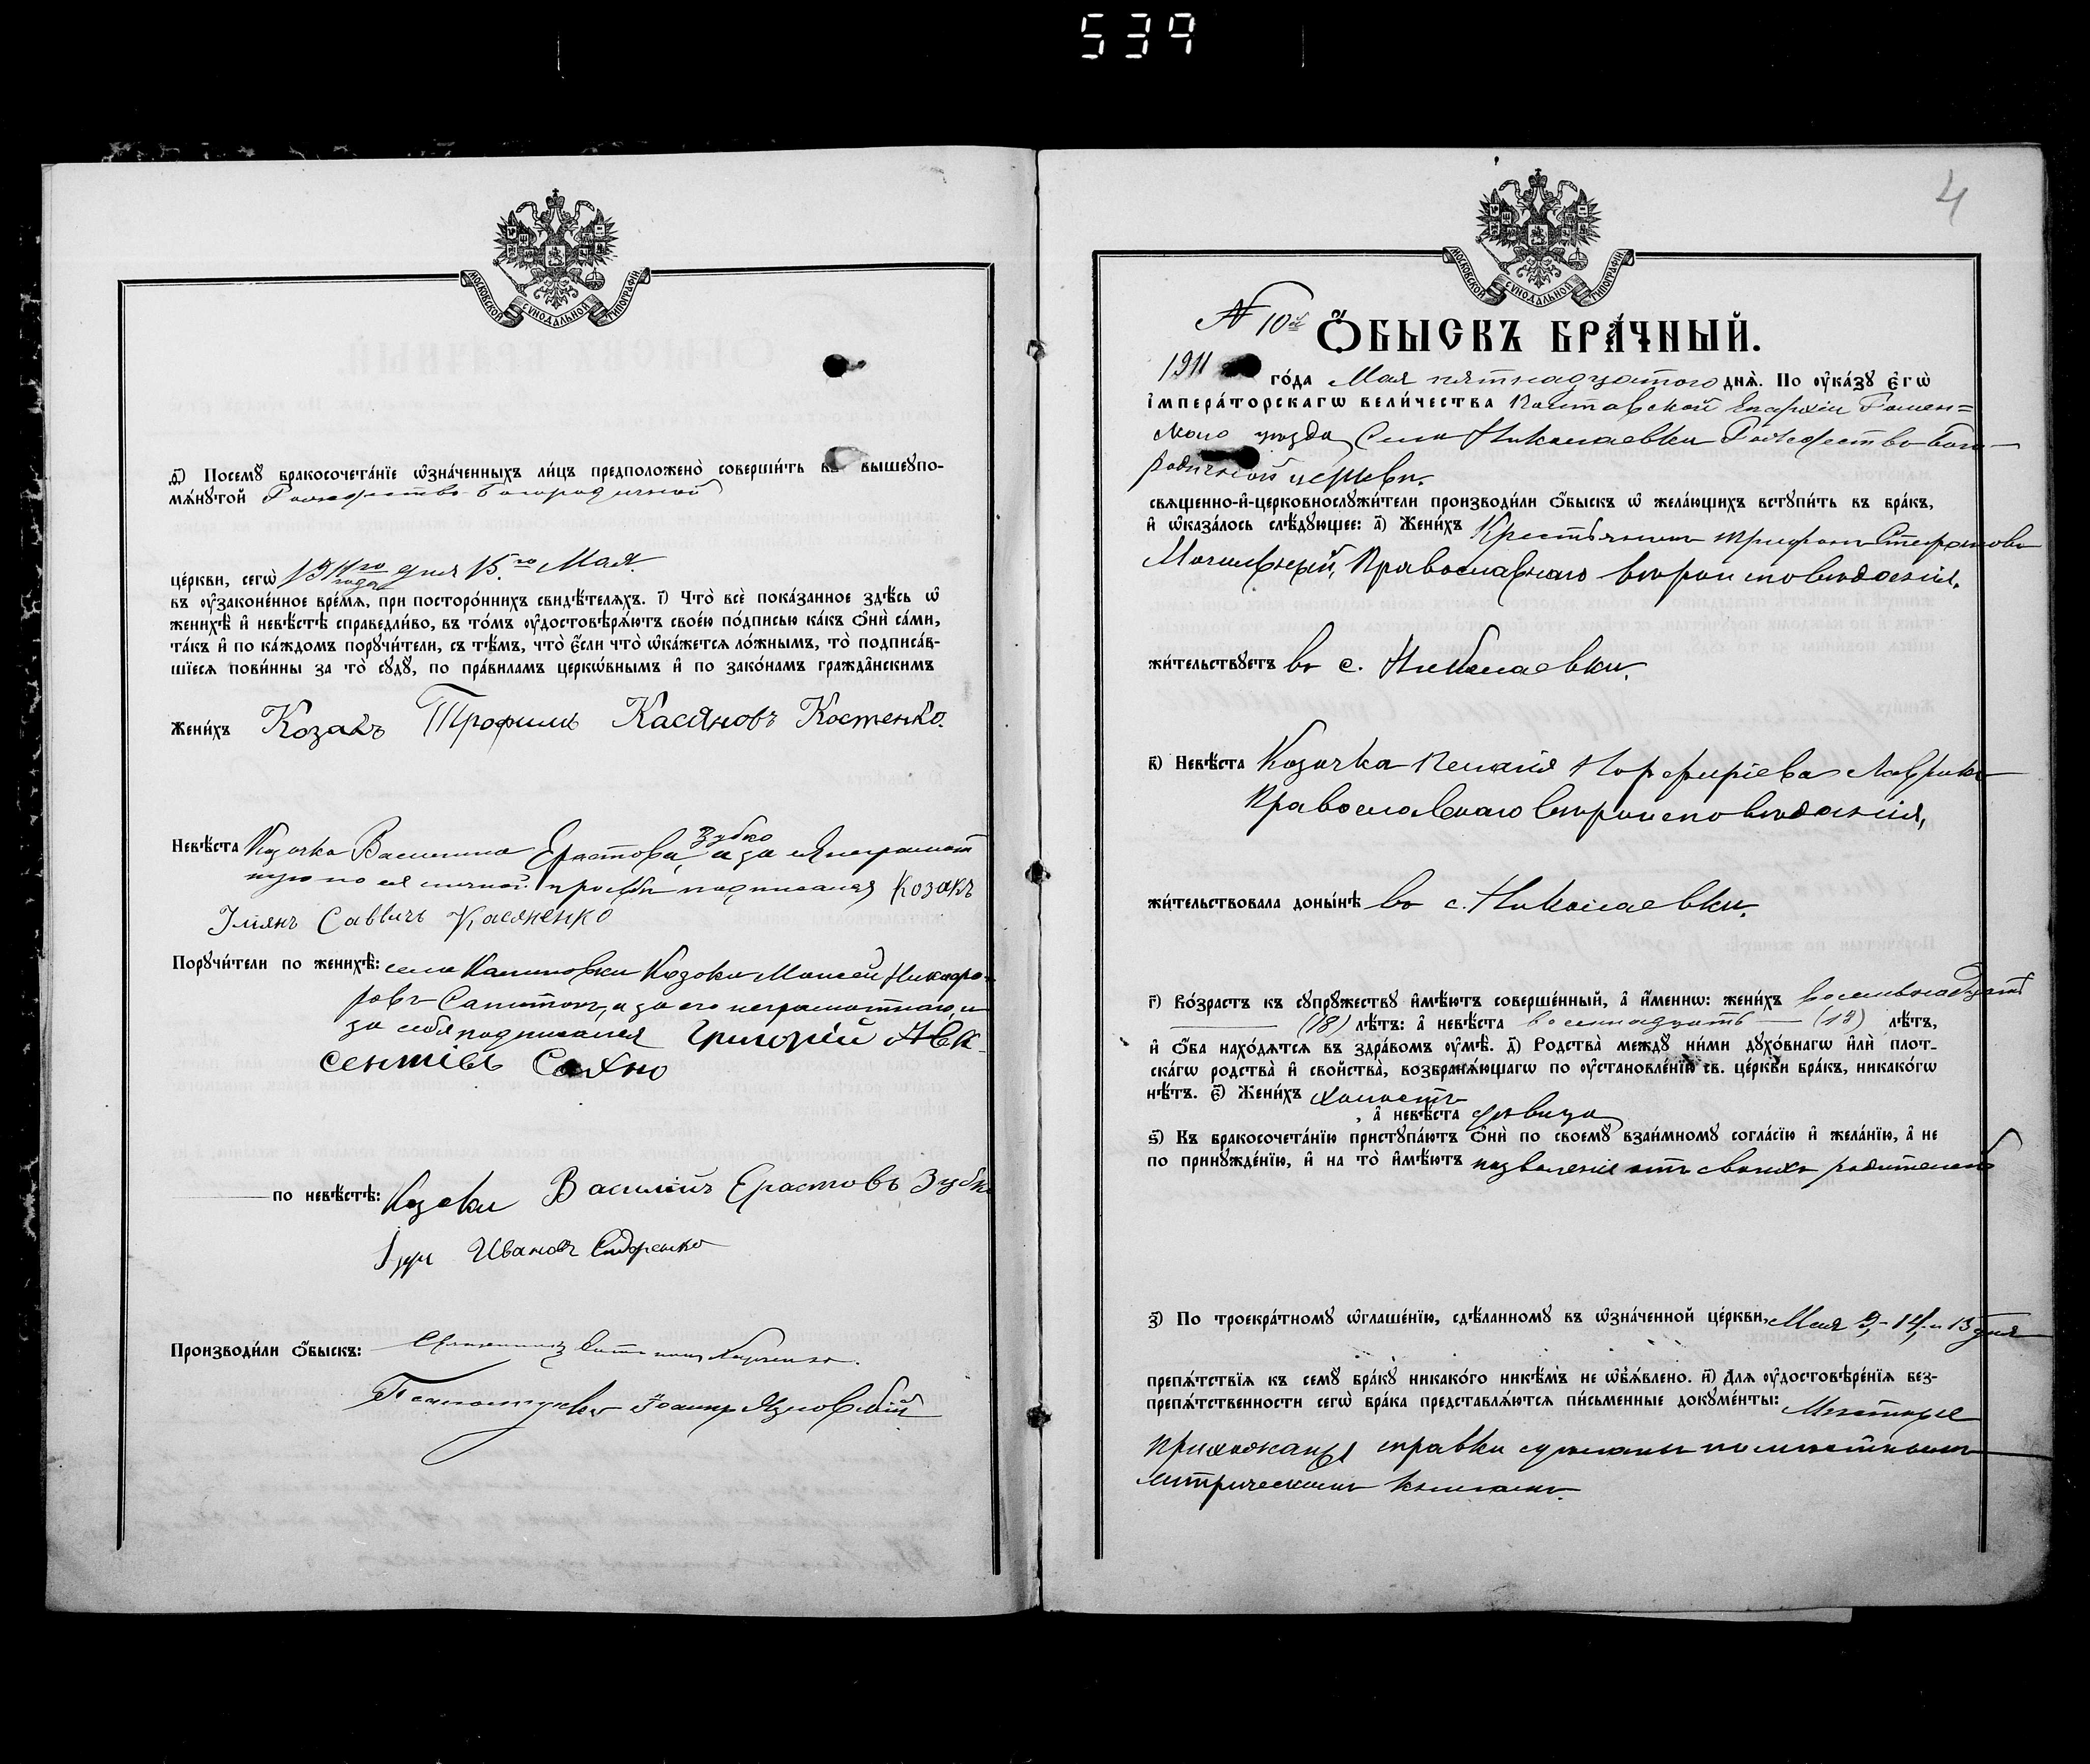 539
МОСКОВСКОЙ СУНОДАЛЬНОЙ ТИПОГРАФІИ
д҃) Посемꙋ̀ бракосочета́нїе ѡзна́ченныхъ ли́цъ предположено̀ соверши́ть въ вышеꙋпо-
мѧ́нꙋтой Рождество-Богородичной
це́ркви, сегѡ̀ 1911го года дня 15.го Мая
въ ᲂу҆зако́ненное вре́мѧ, при посторо́ннихъ свидѣ́телѧхъ. і҃) Что̀ всѐ пока́занное здѣ́сь ѡ҆
женихѣ̀ и҆ невѣ́стѣ справедли́во, въ то́мъ ᲂу҆достовѣрѧ́ютъ свое́ю по́дписью ка́къ ѻ҆нѝ са́ми,
та́къ и҆ по ка́ждомъ порꙋчи́тели, съ тѣ́мъ, что̀ є҆́сли что̀ ѡ҆ка́жетсѧ ло́жнымъ, то̀ подписа́в-
шїесѧ пови́нны за то̀ сꙋдꙋ̀, по пра́виламъ церкѡ́внымъ и҆ по зако́намъ гражда́нскимъ
Жени́хъ Козакъ Трофимъ Касіяновъ Костенко.
Невѣ́ста Козачка Василина Ерастова, Зубко а за ея неграмот
ную по ея личной просьбе подписался Козакъ
Іліянъ Саввичъ Касяненко
Порꙋчи́тели по женихѣ̀: села Калиновки Козаки Моисей Никифо-
ровъ а за его неграмотнаго, и
за себя подписался Григорій Авк-
сентіевъ Сахно
по невѣ́стѣ: Козаки Василій Ерастовъ Зубко
Иванов Сидоренко
Производи́ли ѻ҆́быскъ: Священникъ
Псаломщикъ Іоаннъ Язловскій
4
МОСКОВСКОЙ СУНОДАЛЬНОЙ ТИПОГРАФІИ
N 10й Ѻ҆́БЫСКЪ БРА́ЧНЫЙ.
1911 го́да Мая пятнадцатого днѧ̀. По ᲂу҆ка́зꙋ є҆гѡ̀
і҆мпера́торскагѡ вели́чества Полтавской Епархіи Ромен=
ского уезда Села Николаевки Рождество-Бого-
родичной церкви.
свѧщенно-и҆-церковнослꙋжи́тели производи́ли ѻ҆́быскъ ѡ҆ жела́ющихъ встꙋпи́ть въ бра́къ,
и҆ ѡ҆каза́лось слѣ́дꙋющее: а҃) Жени́хъ Крестьянинъ Трифонъ Стефановъ
Могилевский, Православнаго вероисповеданія.
жи́тельствꙋетъ въ с. Николаевки.
в҃) Невѣ́ста Козачка Пелагія Порфиріева Лаврикъ
Православнаго вероисповеданія,
жи́тельствовала доны́нѣ въ с. Николаевки.
г҃) Во́зрастъ къ сꙋпрꙋ́жествꙋ и҆мѣ́ютъ соверше́нный, а҆ и҆́меннѡ: жени́хъ восемьнадцать
(18) лѣ́тъ: а҆ невѣ́ста восемнадцать (18) лѣ́тъ,
и҆ ѻ҆́ба нахо́дѧтсѧ въ здра́вомъ ᲂу҆мѣ̀. д҃) Родства̀ междꙋ̀ ни́ми дꙋхо́внагѡ и҆лѝ плот-
ска́гѡ родства̀ и҆ сво́йства̀, возбранѧ́ющагѡ по ᲂу҆становле́нїю св. це́ркви бра́къ, никако́гѡ
нѣ́тъ. є҃) Жени́хъ холостъ
, а҆ невѣ́ста девица
ѕ҃) Къ бракосочета́нїю пристꙋпа́ютъ ѻ҆нѝ по своемꙋ̀ взаи́мномꙋ согла́сїю и҆ жела́нїю, а҆ не
по принꙋжде́нїю, и҆ на то̀ и҆мѣ́ютъ позволеніе отъ своихъ родителей
з҃) По троекра́тномꙋ ѡ҆глаше́нїю, сдѣ́ланномꙋ въ ѡ҆зна́ченной це́ркви, Мая 9,-14, и 15 дня
препѧ́тствїѧ къ семꙋ̀ бра́кꙋ никако́го никѣ́мъ не ѡ҆б̾ѧ́влено. и҃) Для ᲂу҆достовѣре́нїѧ без-
препѧ́тственности сегѡ̀ бра́ка представлѧ́ютсѧ пи́сьменные докꙋме́нты: Местные
прихожаны справки сделаны по местнымъ
метрическимъ книгамъ.